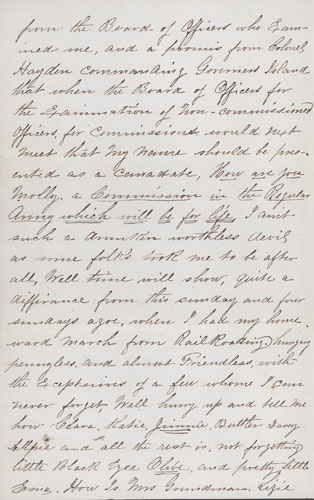 from the Board of Officers who Exam-
ined me, and a promis from Colonel
Hayden Commanding Governers Island
that when the Board of Officers for
the Examination of non-commissioned
Officers, for Commissions, would next
meet that my name should be pre-
ented as a canadate, How are you
Molly, a Commission in the Regular
Army which will be for life, I aint
such a drunken worthless devil
as some folks took me to be after
all, Well time will show, quite a
differance from this sunday and four
sundays agoe, when I had my home
ward march from Rail Roading, hungery
pennyless, and almost Friendless, with
the Exceptions of a few whome I can
never forget, Well hurry up and tell me
how Clara, Katie, Jinnie Buttler Davy
and all the rest is, not forgetting
little Black Eyed Olive, and pretty little
Emma, How Is Mrs Lizie